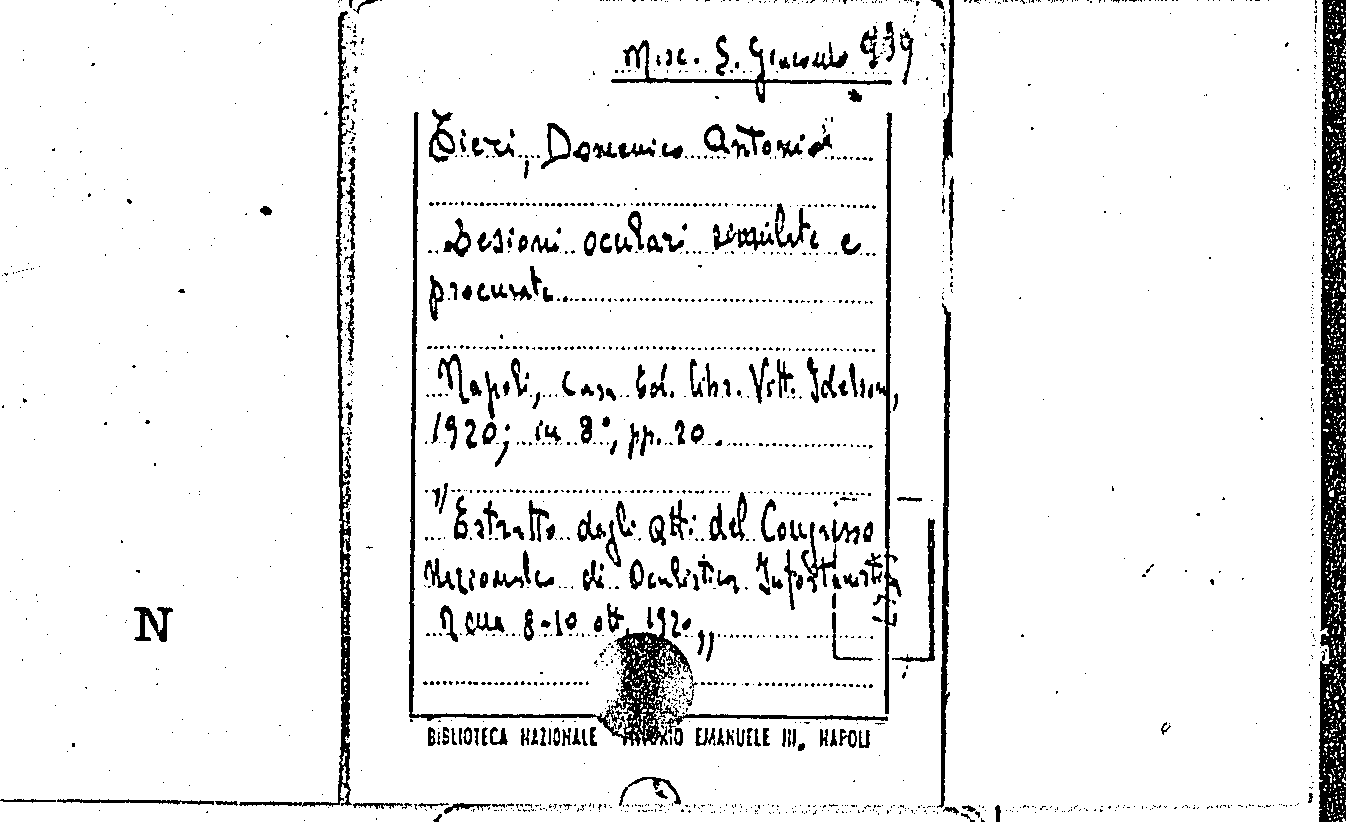 Misc. S. Giacomo 939
Tieri, Domenico Antonio
Lesioni oculari simulate e
procurate.
Napoli, Casa Ed. libr. Vitt. Idelson,
1920; in 8°, pp. 20.
"Estratto dagli Atti del Congresso
Nazionale di Oculistica Infortunistica
8-10 ott. 1920,,
N
BIBLIOTECA NAZIONALE VITTORIO EMANUELE III. NAPOLI